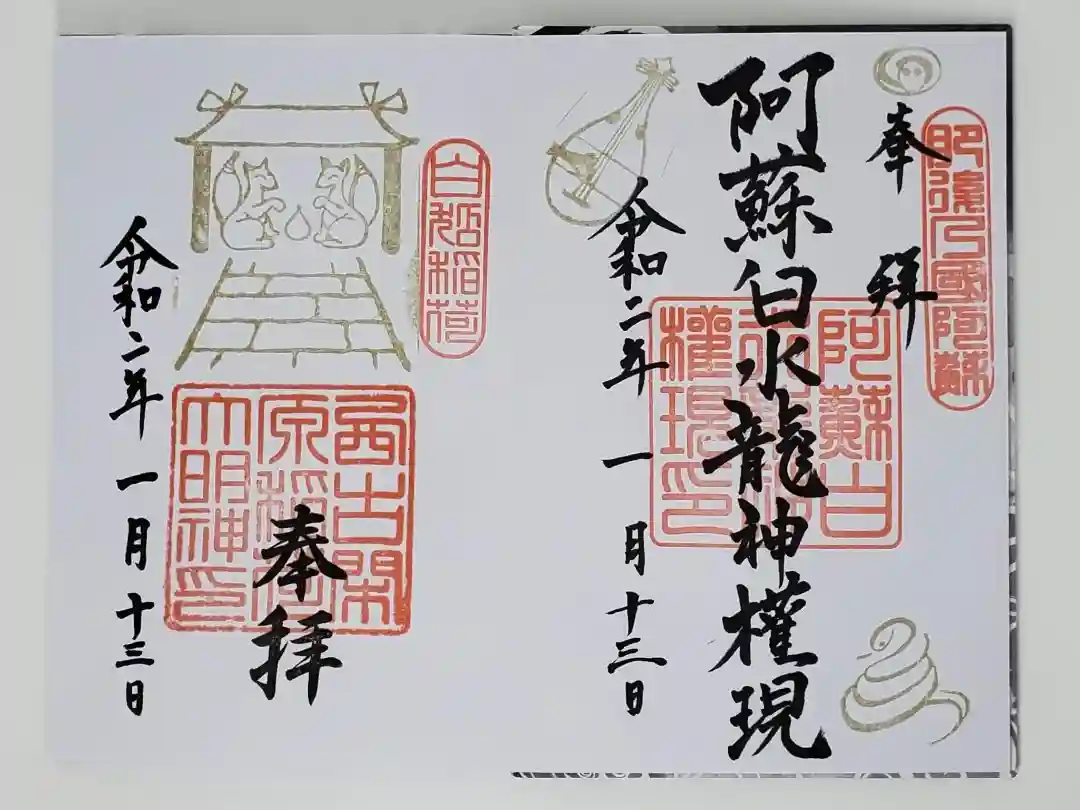 肥後乃國阿蘇
奉拝
阿蘇白水龍神權現
阿蘇白
水龍神
權現印
令和二年一月十三日
稲荷
西古閑
原稲荷
大明神印
奉拝
令和二年一月十三日